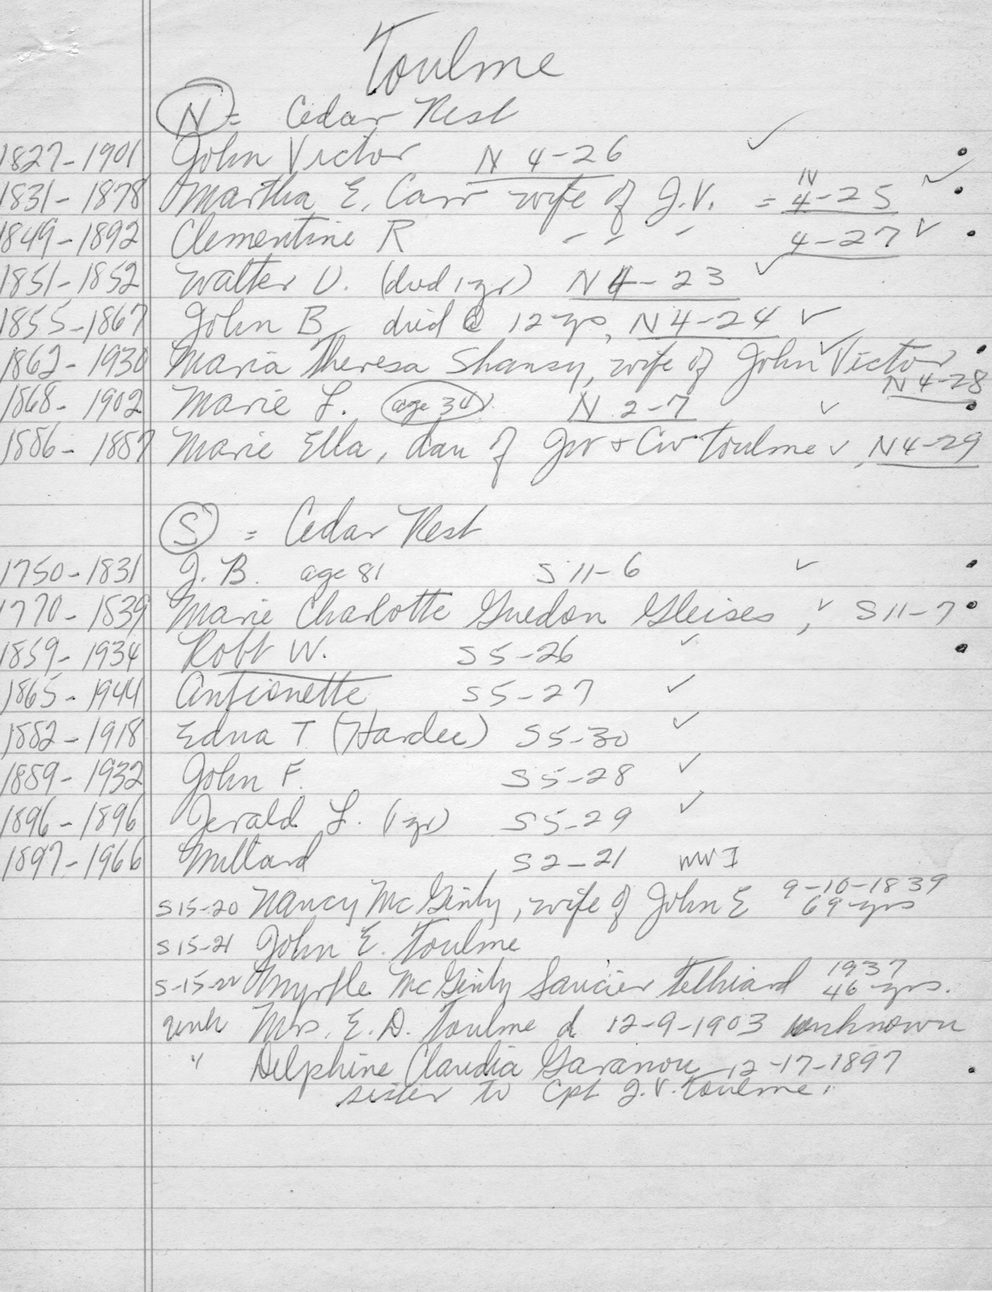 Toulme
N = Cedar Rest
1827-1901 John Victor N 4-26 ✓
1831-1878 Martha E. Carr wife of J.V. = N 4-25 ✓
1849-1892 Clementine R " " " 4-27 ✓
1851-1852 Walter V. (died 1 yr) N 4-23 ✓
1855-1867 John B died @ 12 yrs, N 4-24 ✓
1862-1930 Maria Theresa Shansy, wife of John Victor ✓
N 4-28
1868-1902 Marie L. (age 34) N 2-7 ✓
1886-1887 Marie Ella, dau of JV + CW Toulme ✓, N 4-29
S = Cedar Rest
1750-1831 J. B. age 81 S 11-6 ✓
1770-1839 Marie Charlotte Guedon Gleises, ✓ S 11-7
1859-1934 Robt W. S 5-26 ✓
1865-1944 Antionette S 5-27 ✓
1882-1918 Edna T (Hardee) S 5-30 ✓
1889-1932 John F. S 5-28 ✓
1896-1896 Jerald L. (1 yr) S 5-29 ✓
1897-1966 Millard S 2-21 WW I
S 15-20 Nancy McGinty, wife of John E 9-10-1839 69 yrs
S 15-21 John E. Toulme
S-15-22 Myrtle McGinty Saucier Telhiard 1937 46 yrs.
unk Mrs. E. D. Toulme d 12-9-1903 unknown
" Delphine Claudia Garanou 12-17-1897
sister to Cpt J. V. Toulme.